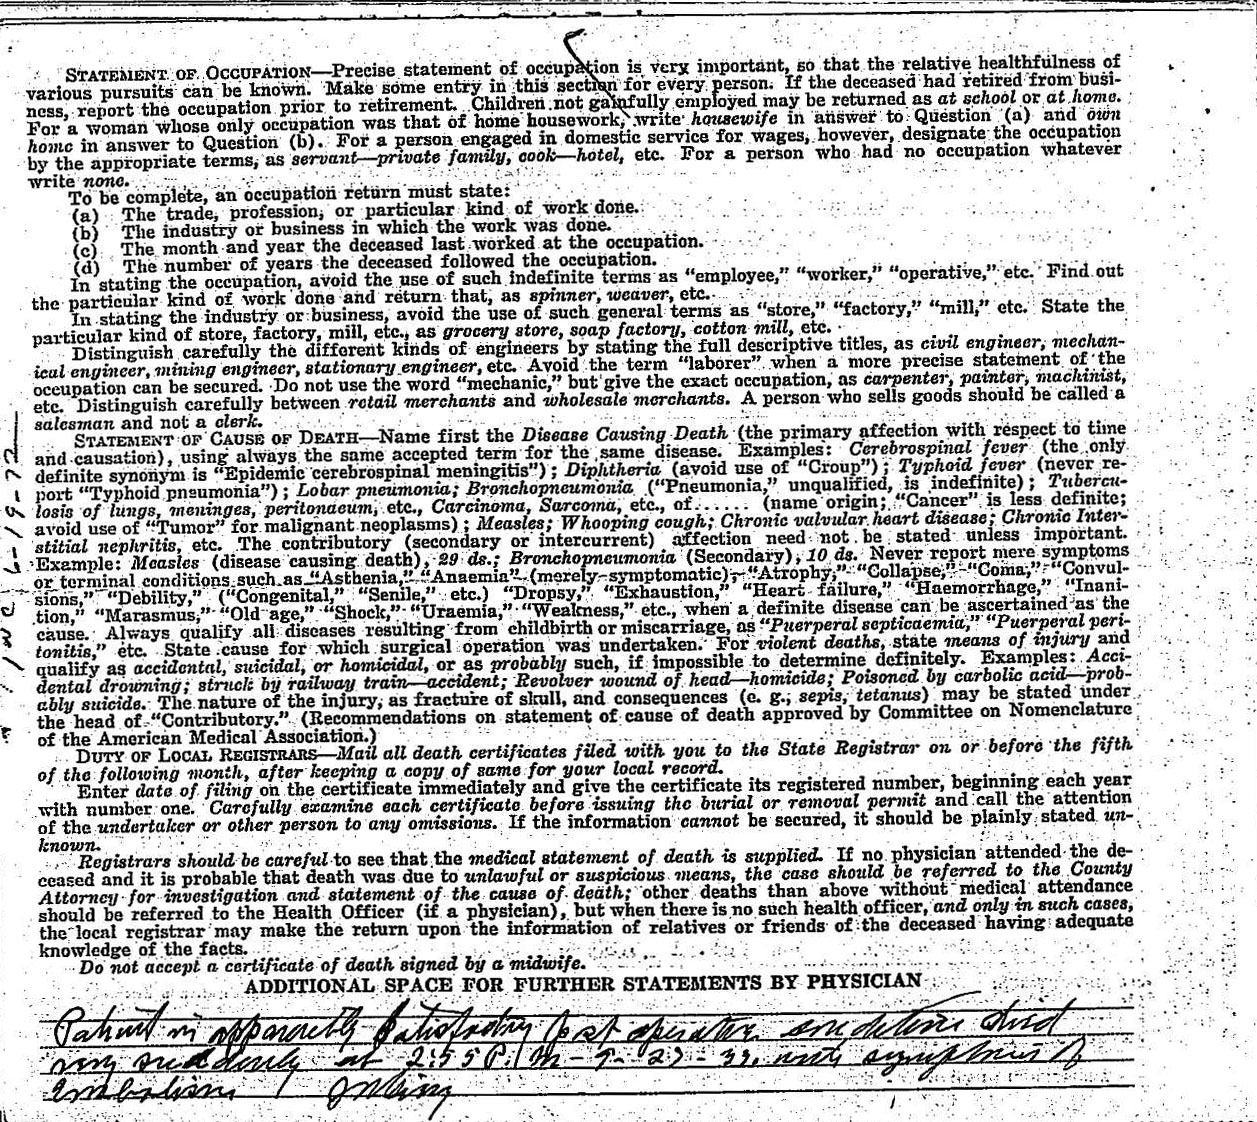 STATEMENT OF OCCUPATION—Precise statement of occupation is very important, so that the relative healthfulness of
various pursuits can be known. Make some entry in this section for every person. If the deceased had retired from busi-
ness, report the occupation prior to retirement. Children not gainfully employed may be returned as at school or at home.
For a woman whose only occupation was that of home housework, write housewife in answer to Question (a) and own
home in answer to Question (b). For a person engaged in domestic service for wages, however, designate the occupation
by the appropriate terms, as servant—private family, cook—hotel, etc. For a person who had no occupation whatever
write none.
To be complete, an occupation return must state:
(a) The trade, profession, or particular kind of work done.
(b) The industry or business in which the work was done.
(c) The month and year the deceased last worked at the occupation.
(d) The number of years the deceased followed the occupation.
In stating the occupation, avoid the use of such indefinite terms as "employee," "worker," "operative," etc. Find out
the particular kind of work done and return that, as spinner, weaver, etc.
In stating the industry or business, avoid the use of such general terms as "store," "factory," "mill," etc. State the
particular kind of store, factory, mill, etc., as grocery store, soap factory, cotton mill, etc.
Distinguish carefully the different kinds of engineers by stating the full descriptive titles, as civil engineer, mechan-
ical engineer, mining engineer, stationary engineer, etc. Avoid the term "laborer" when a more precise statement of the
occupation can be secured. Do not use the word "mechanic," but give the exact occupation, as carpenter, painter, machinist,
etc. Distinguish carefully between retail merchants and wholesale merchants. A person who sells goods should be called a
salesman and not a clerk.
STATEMENT OF CAUSE OF DEATH—Name first the Disease Causing Death (the primary affection with respect to time
and causation), using always the same accepted term for the same disease. Examples: Cerebrospinal fever (the only
definite synonym is "Epidemic cerebrospinal meningitis"); Diphtheria (avoid use of "Croup"); Typhoid fever (never re-
port "Typhoid pneumonia"); Lobar pneumonia; Bronchopneumonia ("Pneumonia," unqualified, is indefinite); Tubercu-
losis of lungs, meninges, peritonaeum, etc., Carcinoma, Sarcoma, etc., of...... (name origin; "Cancer" is less definite;
avoid use of "Tumor" for malignant neoplasms); Measles; Whooping cough; Chronic valvular heart disease; Chronic Inter-
stitial nephritis, etc. The contributory (secondary or intercurrent) affection need not be stated unless important.
Example: Measles (disease causing death), 29 ds.; Bronchopneumonia (Secondary), 10 ds. Never report mere symptoms
or terminal conditions such as "Asthenia," "Anaemia" (merely symptomatic), "Atrophy," "Collapse," "Coma," "Convul-
sions," "Debility," ("Congenital," "Senile," etc.) "Dropsy," "Exhaustion," "Heart failure," "Haemorrhage," "Inani-
tion," "Marasmus," "Old age," "Shock," "Uraemia," "Weakness," etc., when a definite disease can be ascertained as the
cause. Always qualify all diseases resulting from childbirth or miscarriage, as "Puerperal septicaemia," "Puerperal peri-
tonitis," etc. State cause for which surgical operation was undertaken. For violent deaths, state means of injury and
qualify as accidental, suicidal, or homicidal, or as probably such, if impossible to determine definitely. Examples: Acci-
dental drowning; struck by railway train—accident; Revolver wound of head—homicide; Poisoned by carbolic acid—prob-
ably suicide. The nature of the injury, as fracture of skull, and consequences (e. g., sepis, tetanus) may be stated under
the head of "Contributory." (Recommendations on statement of cause of death approved by Committee on Nomenclature
of the American Medical Association.)
DUTY OF LOCAL REGISTRARS—Mail all death certificates filed with you to the State Registrar on or before the fifth
of the following month, after keeping a copy of same for your local record.
Enter date of filing on the certificate immediately and give the certificate its registered number, beginning each year
with number one. Carefully examine each certificate before issuing the burial or removal permit and call the attention
of the undertaker or other person to any omissions. If the information cannot be secured, it should be plainly stated un-
known.
Registrars should be careful to see that the medical statement of death is supplied. If no physician attended the de-
ceased and it is probable that death was due to unlawful or suspicious means, the case should be referred to the County
Attorney for investigation and statement of the cause of death; other deaths than above without medical attendance
should be referred to the Health Officer (if a physician), but when there is no such health officer, and only in such cases,
the local registrar may make the return upon the information of relatives or friends of the deceased having adequate
knowledge of the facts.
Do not accept a certificate of death signed by a midwife.
ADDITIONAL SPACE FOR FURTHER STATEMENTS BY PHYSICIAN
Patient in apparently satisfactory post operative condition died
very suddenly at 2:55 P.M. with symptoms of
Embolism